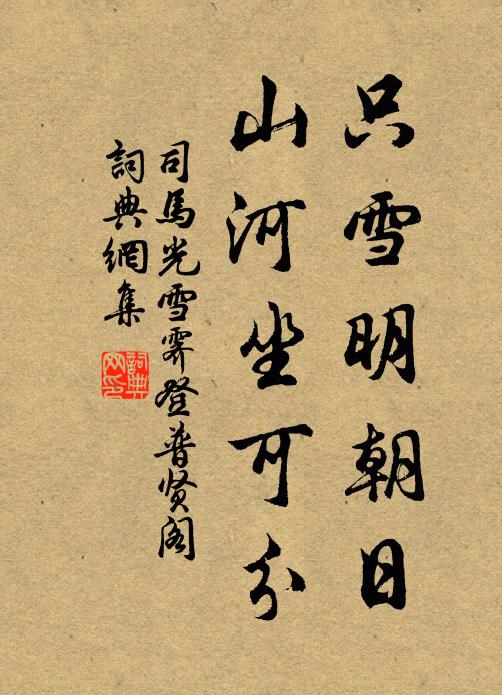 只雪明朝日
山河坐可分
司馬光雪霽登普贤阁
詞典網集
詞典网印